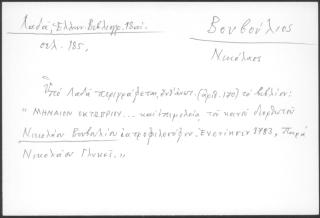 Λαδᾶ, Ἑλλην. Βιβλιογρ. 18 αἰ.
σελ. 185,
Βουβούλιος
Νικόλαος
Ὑπὸ Λαδᾶ περιγράφεται, (ἀριθ. 170) τὸ βιβλίον:
"ΜΗΝΑΙΟΝ ΟΚΤΩΒΡΙΟΥ... καὶ ἐπιμελείᾳ, τοῦ κοινοῦ διορθωτοῦ
Νικολάου Βουβουλίου ἰατροφιλοσόφου. Ἐνετίησιν 1783, Παρὰ
Νικολάῳ Γλυκεῖ."